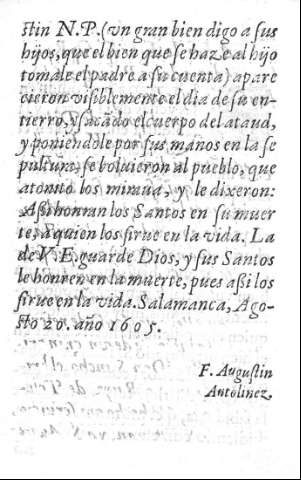 stin N.P.(vn gran bien digo a sus
hijos, que el bien que se haze al hijo
tomale el padre a su cuenta) apare
cieron visiblemente el dia de su en-
tierro, y sacãdo el cuerpo del ataud,
y poniẽdole por sus manos en la se
pultura, se boluieron al pueblo, que
atonito los miraua, y le dixeron:
Assi honran los Santos en su muer
te, a quien los sirue en la vida. La
de V.E. guarde Dios, y sus Santos
le honren en la muerte, pues assi los
sirue en la vida. Salamanca, Ago-
sto 20. año 1605.
F. Augustin
Antolinez.